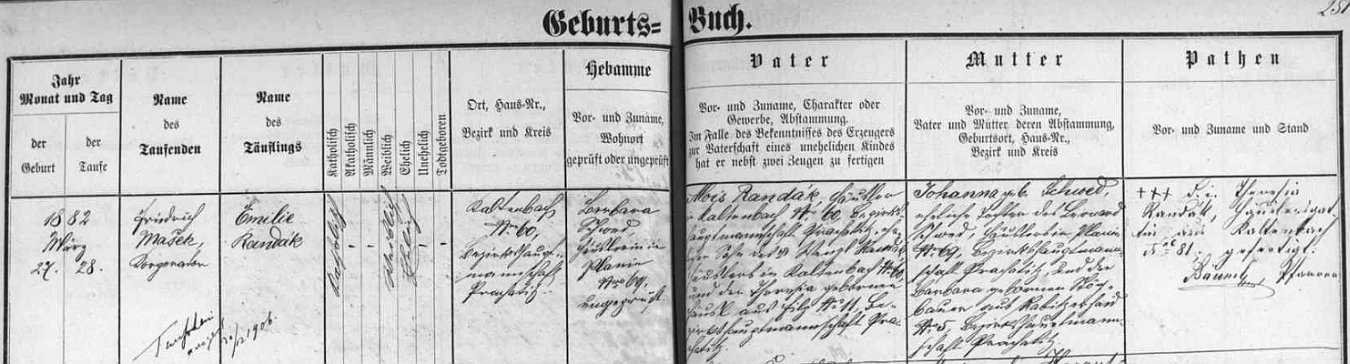 Geburts=Buch.
251
Jahr
Monat und Tag
der
Geburt
der
Taufe
Name
des
Taufenden
Name
des
Täuflings
Katholisch
Akatholisch
Männlich
Weiblich
Ehelich
Unehelich
Todtgeboren
Ort, Haus-Nr.,
Bezirk und Kreis
Hebamme
Vor- und Zuname,
Wohnort
geprüft oder ungeprüft
Vater
Vor- und Zuname, Charakter oder
Gewerbe, Abstammung.
Im Falle des Bekenntnisses des Erzeugers
zur Vaterschaft eines unehelichen Kindes
hat er nebst zwei Zeugen zu fertigen
Mutter
Vor- und Zuname,
Vater und Mutter deren Abstammung,
Geburtsort, Haus-Nr.,
Bezirk und Kreis
Pathen
Vor- und Zuname und Stand
1882
März
27. 28.
Friedrich
Mašek,
Kooperator
Emilie
Randák
Katholisch
-
-
Weiblich
Ehelich
-
-
Kaltenbach
Nr. 60,
Bezirkshaupt-
mannschaft
Prachatitz.
Barbara
Schwed
Häuslerin in
Planie
Nro 69.
ungeprüft
Alois Randák, Häusler
in Kaltenbach Nr. 60, Bezirks-
hauptmannschaft Prachatitz,
Sohn des Wenzl Randák
Häuslers in Kaltenbach Nr. 60,
und der Theresia geborenen
aus Filz Nr. 11, Be-
zirkshauptmannschaft Pra-
chatitz.
Johanna geb. Schwed,
eheliche Tochter des Leonard
Schwed, Häusler in Planie
Nr. 69, Bezirkshauptmann-
schaft Prachatitz, und der
Barbara gebornen
bauer aus
Nr. 5, Bezirkshauptmann-
schaft Prachatitz.
+++ Theresia
Randák, Häuslersgat-
tin aus Kaltenbach
Nro 81.
gefertigt.
Pfarrer
Taufschein
1906.